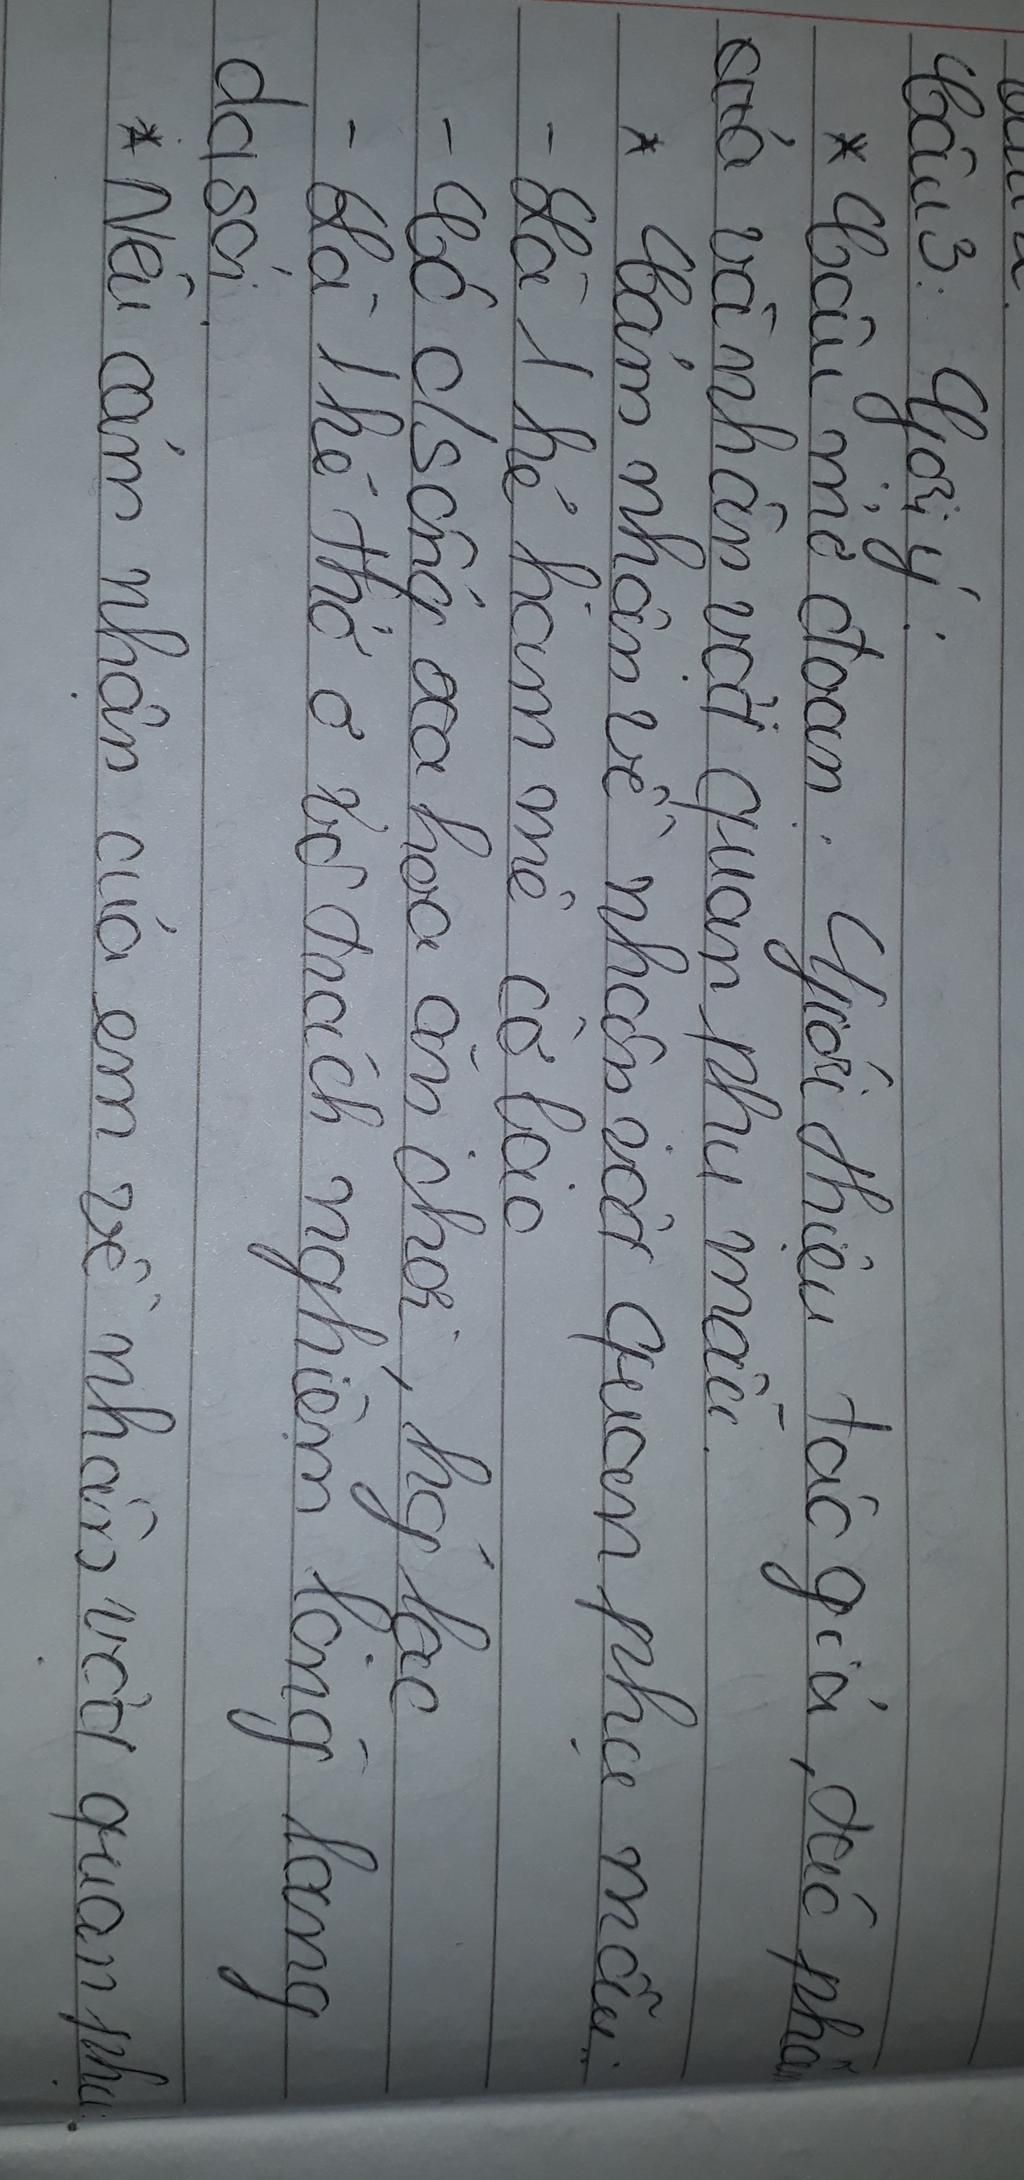 Câu 3: Gợi ý:
* Câu mở đoạn: Giới thiệu tác giả, tác phẩm
và nhân vật quan phụ mẫu.
* Cảm nhận về nhân vật quan phụ mẫu:
- Là 1 kẻ ham mê cờ bạc
- Có c/sống xa hoa ăn chơi, hg lạc
- Là 1 kẻ thờ ơ vô trách nghiệm lòng lang
dạ sói.
* Nêu cảm nhận của em về nhân vật quan phụ